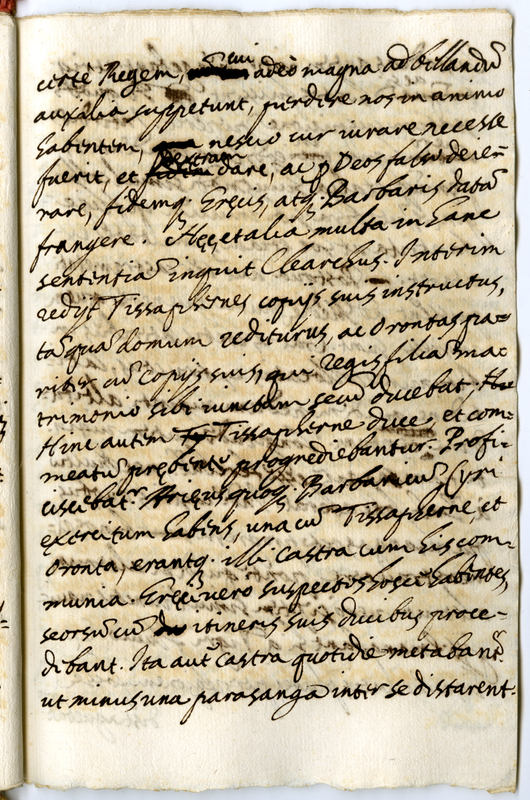 certè Regem, cui adeò magna ad bellandũ
auxilia suppetunt, perdere nos in animo
habentem, nescio cur iurare necesse
fuerit, et dextram dare, ac p Deos falso deie=
rare, fidemq. Gręcis, atq. Barbaris datã
frangere. Hęc, et alia multa in hanc
sententiã inquit Clearchus. Interim
redijt Tissaphernes copijs suis instructus,
tãquã domum rediturus, ac Orontas pa=
riter cũ copijs suis, qui regis filiã ma=
trimonio sibi iunctam secũ ducebat.
Hinc autem Tissapherne duce, et com=
meatũ prębente progrediebantur. Profi=
ciscebat.r Arięus quoq. Barbaricũ Cyri
exercitum habens, una cũ Tissapherne, et
Oronta, erantq. illi castra cum his com=
munia. Gręci vero suspectos hosce habentes,
seorsũ cũ itineris suis ducibus proce=
debant. Ita aut castra quotidie metabant.r
ut minus una parasanga inter se distarent.